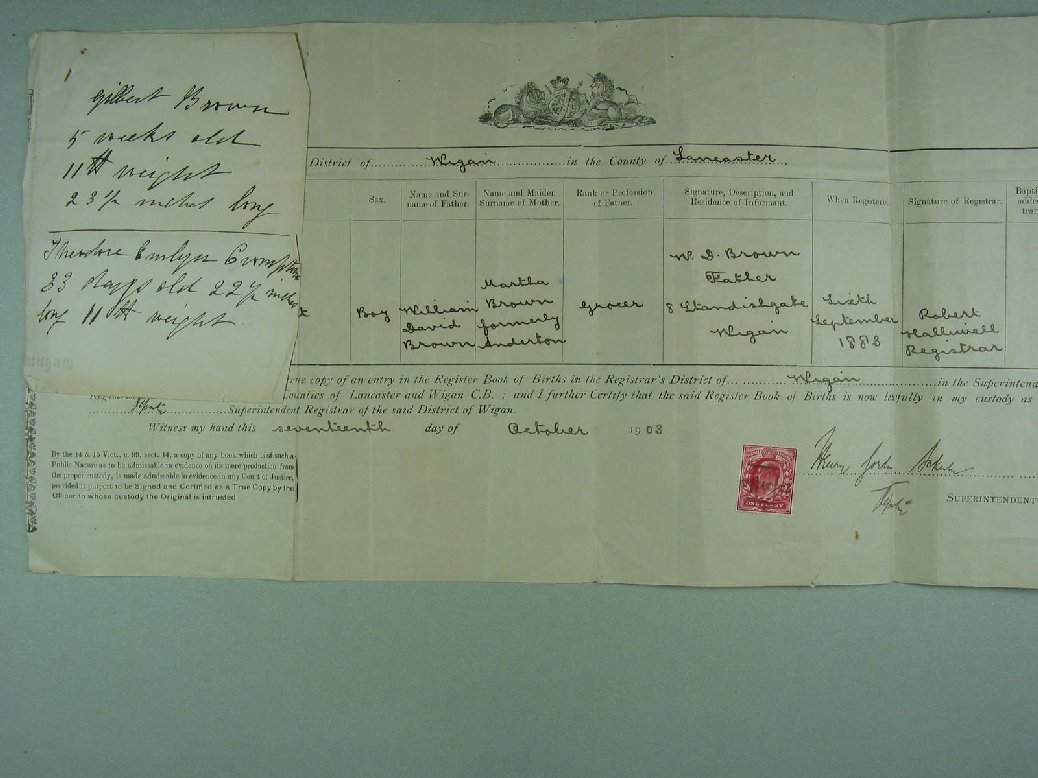 Gilbert Brown
5 weeks old
11 lb weight
23 1/2 inches long
Theodore Emlyn Crompton
33 days old 22 1/2 inches
long 11 lb weight
District of Wigan in the County of Lancaster
Sex.
Name and Sur-
name of Father.
Name and Maiden
Surname of Mother.
Rank or Profession
of Father.
Signature, Description, and
Residence of Informant.
When Registere
Signature of Registrar.
Bapti
Boy
William
David
Brown
Martha
Brown
formerly
Anderton
Grocer
W. D. Brown
Father
8 Standishgate
Wigan
Sixth
September
1883
Robert
Halliwell
Registrar
true copy of an entry in the Register Book of Births in the Registrar's District of Wigan in the Superintend
Counties of Lancaster and Wigan C.B. ; and I further Certify that the said Register Book of Births is now lawfully in my custody as
Superintendent Registrar of the said District of Wigan.
Witness my hand this seventeenth day of October 1903
By the 14 & 15 Vict., c. 99, sect. 14, a copy of any book which is of such a
Public Nature as to be admissible in evidence on its mere production from
the proper custody, is made admissible in evidence in any Court of Justice,
provided it purport to be Signed and Certified as a True Copy by the
Officer to whose custody the Original is intrusted
ONE PENNY
Henry
SUPERINTENDENT